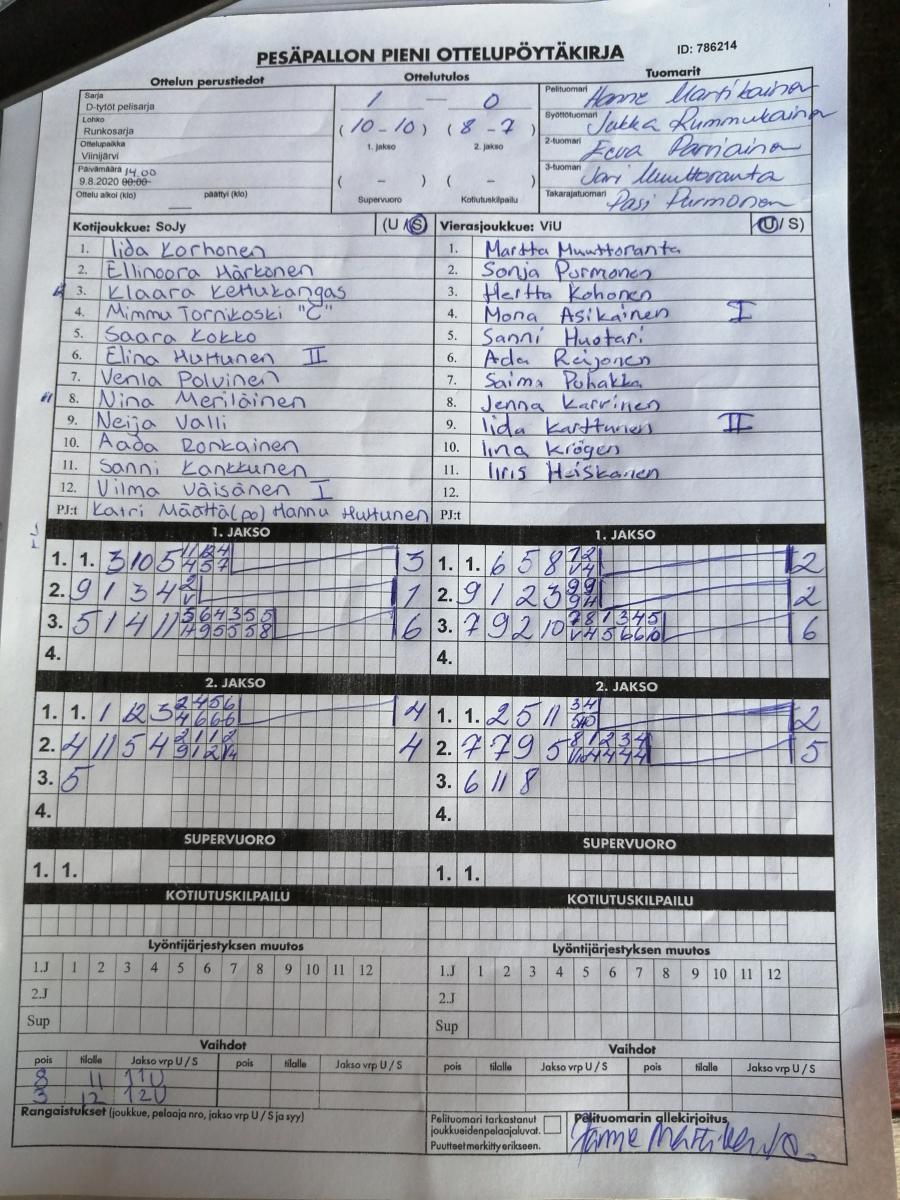 PESÄPALLON PIENI OTTELUPÖYTÄKIRJA
ID: 786214
Ottelun perustiedot
Sarja
D-tytöt pelisarja
Lohko
Runkosarja
Ottelupaikka
Viinijärvi
Päivämäärä 14.00
9.8.2020 00:00
Ottelu alkoi (klo) päättyi (klo)
Ottelutulos
1 — 0
(10-10) (8-7)
1. jakso 2. jakso
( - ) ( - )
Supervuoro Kotiutuskilpailu
Tuomarit
Pelituomari Martikainen
Syöttötuomari Jukka Rummukainen
2-tuomari Eeva Parviainen
3-tuomari Jari Muuttoranta
Takarajatuomari Pasi Purmonen
Kotijoukkue: SoJy (U/S)
1. Iida Korhonen
2. Ellinoora Härkönen
3. Klaara Kettukangas
4. Mimmu Tornikoski "C"
5. Saara Kokko
6. Elina Huttunen II
7. Venla Polvinen
8. Nina Meriläinen
9. Neija Valli
10. Aada Ronkainen
11. Sanni Kankkunen
12. Vilma Väisänen I
PJ:t Katri Määttä (po) Hannu Huttunen
Vierasjoukkue: ViU (U/S)
1. Martta Muuttoranta
2. Sonja Purmonen
3. Hertta Kohonen
4. Mona Asikainen I
5. Sanni Huotari
6. Ada Reijonen
7. Saima Puhakka
8. Jenna Karvinen
9. Iida Karttunen II
10. Iina Krögen
11. Iiris Heiskanen
12.
PJ:t
1. JAKSO
1. 1. 3 10 5 3
2. 9 1 3 4 1
3. 5 1 4 11 6
4.
1. JAKSO
1. 1. 6 5 8 2
2. 9 1 2 3 2
3. 7 9 2 10 6
4.
2. JAKSO
1. 1. 1 12 3 4
2. 4 11 5 4 4
3. 5
4.
2. JAKSO
1. 1. 2 5 11 2
2. 7 7 9 5 5
3. 6 11 8
4.
SUPERVUORO
1. 1.
SUPERVUORO
1. 1.
KOTIUTUSKILPAILU
KOTIUTUSKILPAILU
Lyöntijärjestyksen muutos
1.J 1 2 3 4 5 6 7 8 9 10 11 12
2.J
Sup
Lyöntijärjestyksen muutos
1.J 1 2 3 4 5 6 7 8 9 10 11 12
2.J
Sup
Vaihdot
pois tilalle Jakso vrp U / S pois tilalle Jakso vrp U / S
8 11 11U
3 12 12U
Vaihdot
pois tilalle Jakso vrp U / S pois tilalle Jakso vrp U / S
Rangaistukset (joukkue, pelaaja nro, jakso vrp U / S ja syy)
Pelituomari tarkastanut
joukkueiden pelaajaluvat.
Puutteet merkitty erikseen.
Pelituomarin allekirjoitus